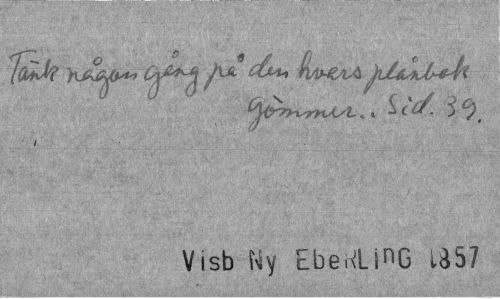 Tänk någon gång på den hvars plånbok
gömmer.. Sid. 39.
Visb Ny EbeRLinG 1857